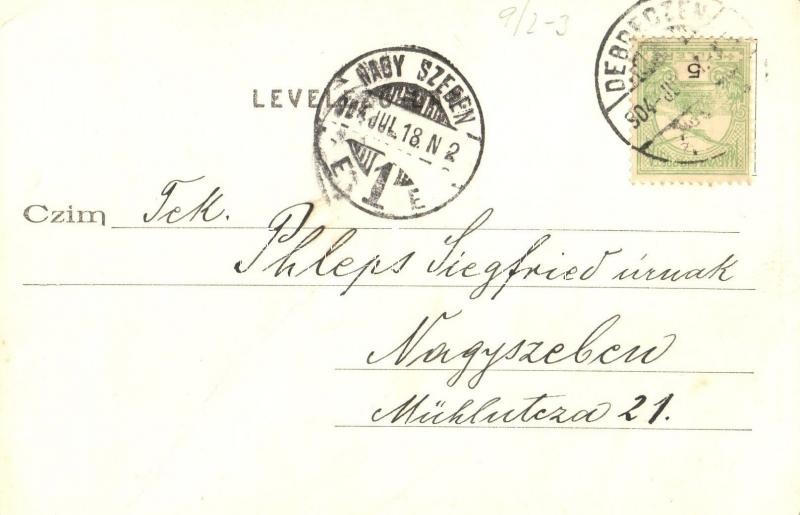 9/2-3
DEBRECZEN
904 JUL
5
NAGY SZEBEN
904 JUL. 18. N 2
1
LEVEL
Czim Tek.
Phleps Siegfried úrnak
Nagyszeben
Mühlutcza 21.